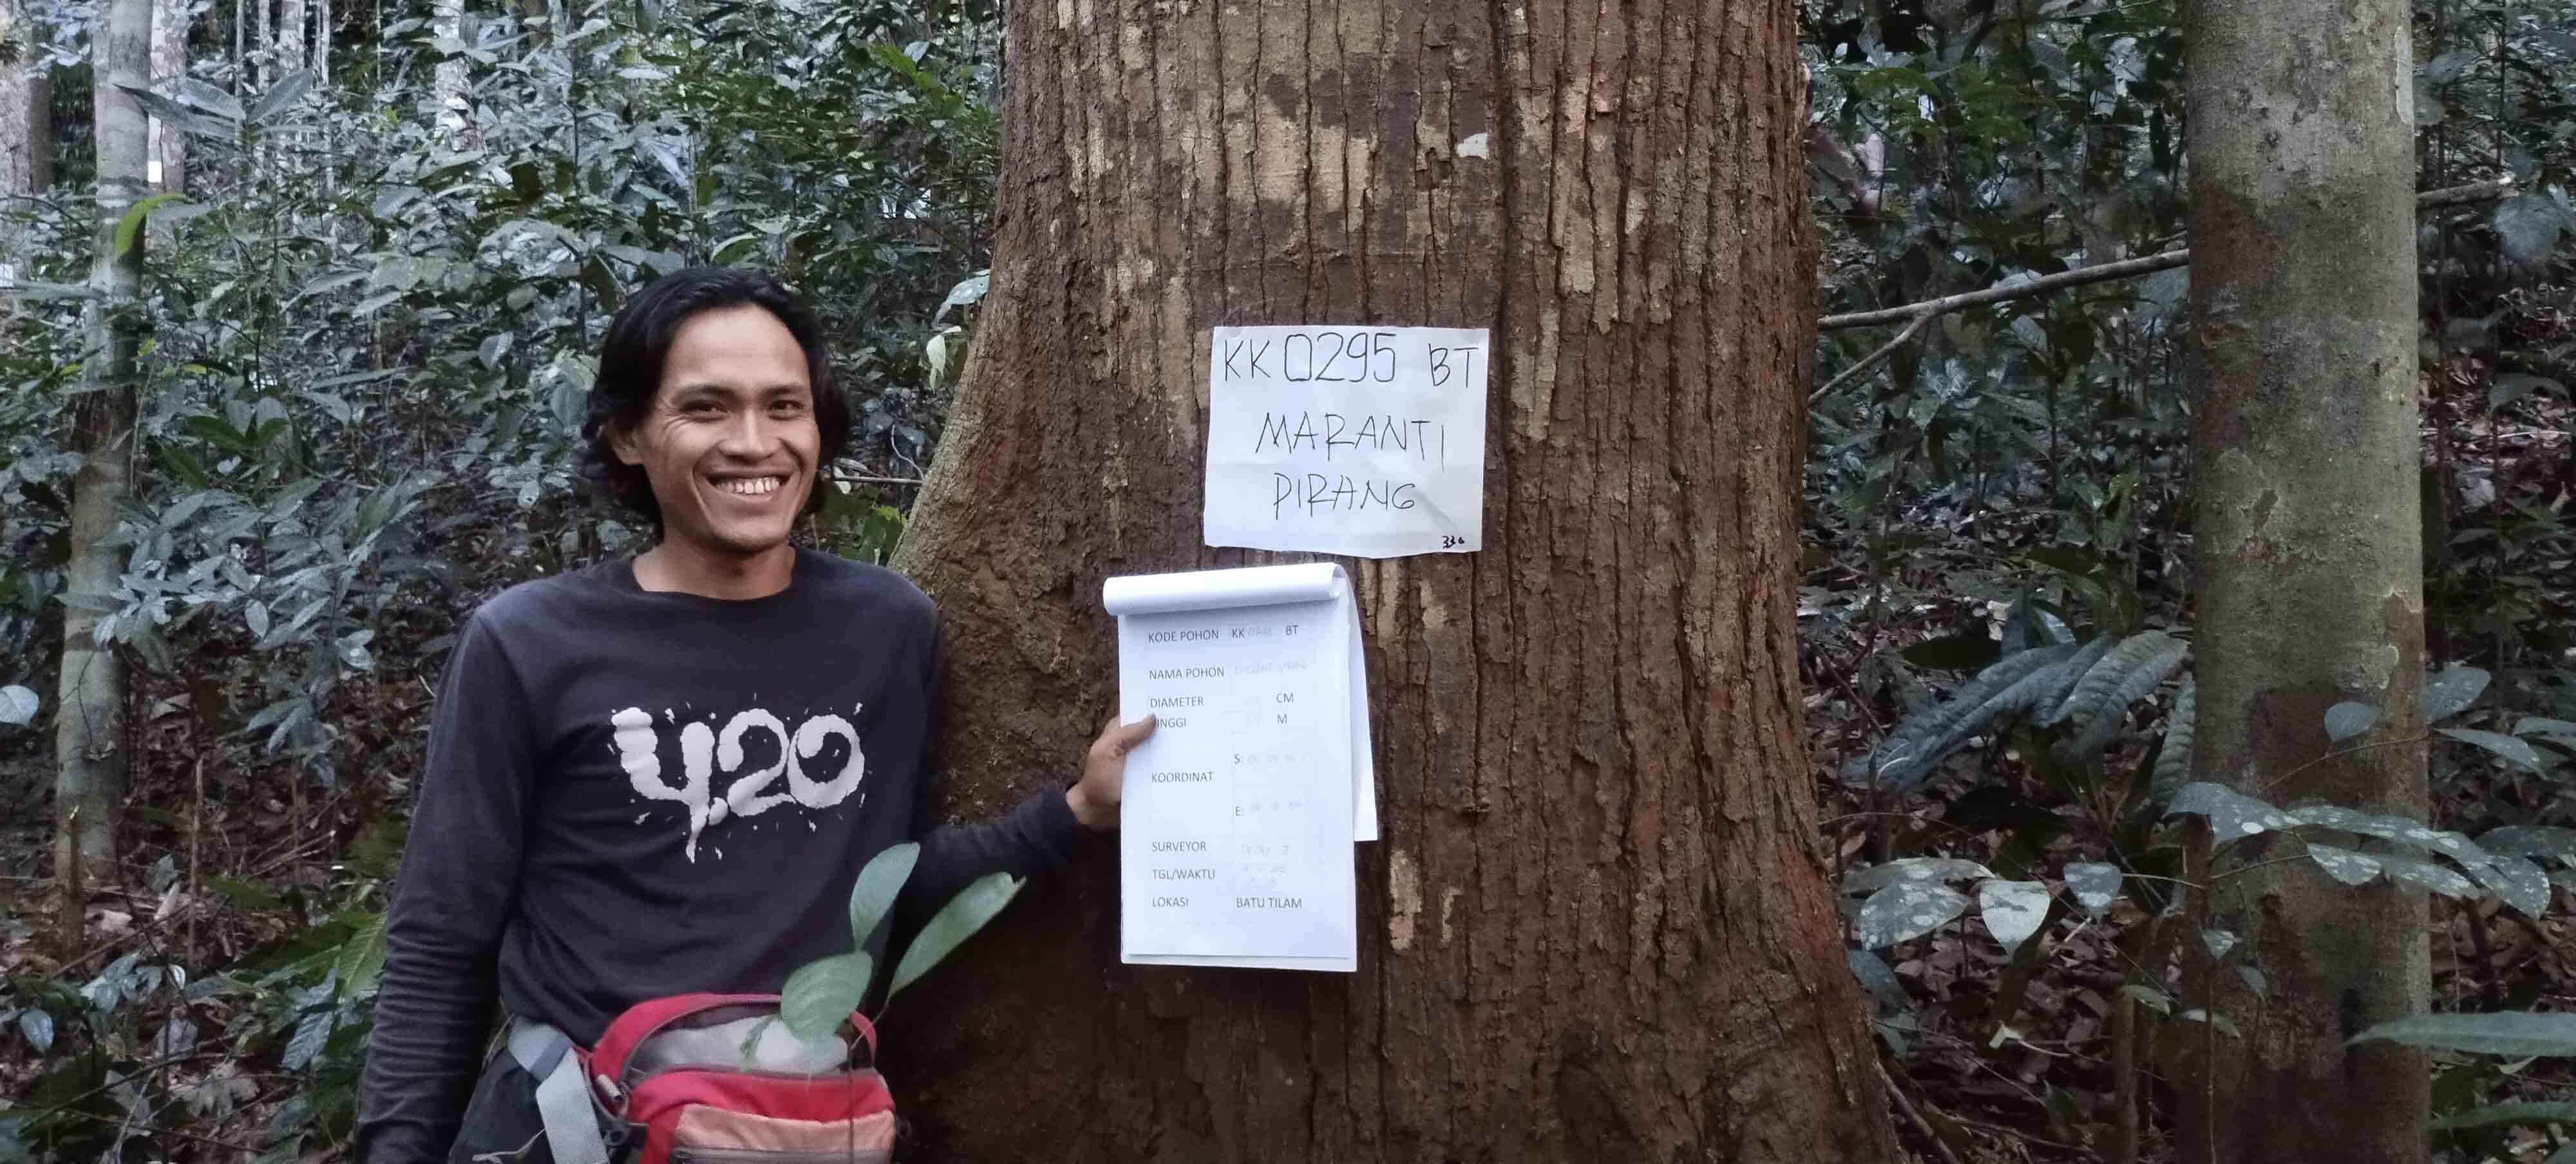 KK 0295 BT
MARANTI
PIRANG
330
4.20
KODE POHON KK BT
NAMA POHON PIRANG
DIAMETER CM
TINGGI M
S:
KOORDINAT
E:
SURVEYOR
TGL/WAKTU
LOKASI BATU TILAM